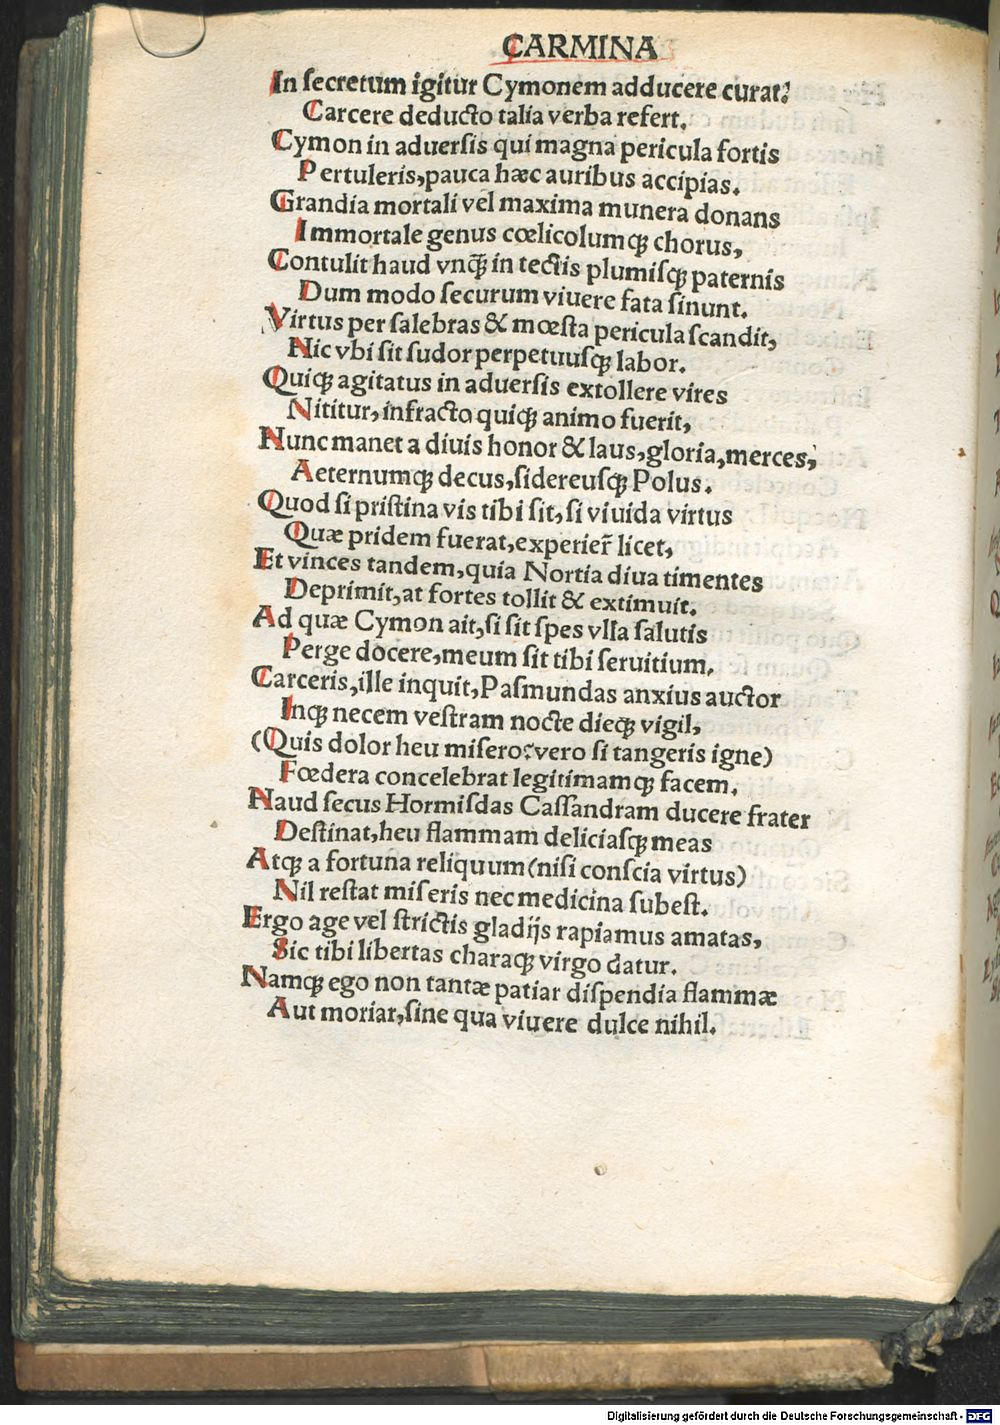 CARMINA
In ſecretum igitur Cymonem adducere curat:
Carcere deducto talia verba refert.
Cymon in aduerſis qui magna pericula fortis
Pertuleris,pauca hæc auribus accipias.
Grandia mortali vel maxima munera donans
Immortale genus cœlicolumqꝫ chorus,
Contulit haud vnqꝫ̃ in tectis plumiſqꝫ paternis
Dum modo ſecurum viuere fata ſinunt.
Virtus per ſalebras & mœſta pericula ſcandit,
Hic vbi ſit ſudor perpetuuſqꝫ labor.
Quiqꝫ agitatus in aduerſis extollere vires
Nititur,infracto quiqꝫ animo fuerit,
Hunc manet a diuis honor & laus,gloria,merces,
Aeternumqꝫ decus,ſidereuſqꝫ Polus.
Quod ſi priſtina vis tibi ſit,ſi viuida virtus
Quæ pridem fuerat,experier̃ licet,
Et vinces tandem,quia Nortia diua timentes
Deprimit,at fortes tollit & extimuit.
Ad quæ Cymon ait,ſi ſit ſpes vlla ſalutis
Perge docere,meum ſit tibi ſeruitium.
Carceris,ille inquit,Paſmundas anxius auctor
Inqꝫ necem veſtram nocte dieqꝫ vigil,
(Quis dolor heu miſero:vero ſi tangeris igne)
Fœdera concelebrat legitimamqꝫ facem.
Haud ſecus Hormiſdas Caſſandram ducere frater
Deſtinat,heu flammam deliciaſqꝫ meas
Atqꝫ a fortuna reliquum(niſi conſcia virtus)
Nil reſtat miſeris nec medicina ſubeſt.
Ergo age vel ſtrictis gladijs rapiamus amatas,
Sic tibi libertas charaqꝫ virgo datur.
Namqꝫ ego non tantæ patiar diſpendia flammæ
Aut moriar,ſine qua viuere dulce nihil.
Digitalisierung gefördert durch die Deutsche Forschungsgemeinschaft - DFG